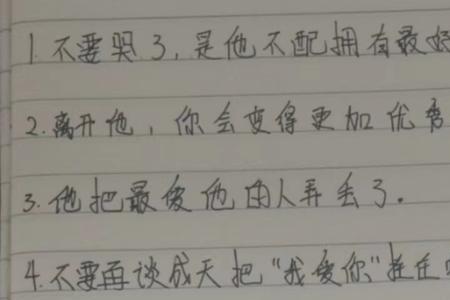 1.不要哭了,是他不配拥有最好
2.离开他,你会变得更加优秀
3.他把最爱他的人弄丢了.
4.不要再谈成天把“我爱你”挂在